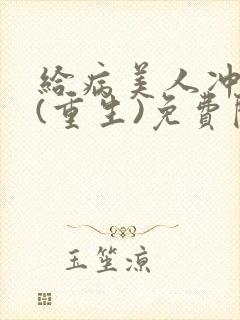 給病美人冲
(重生)免費
玉笙凉